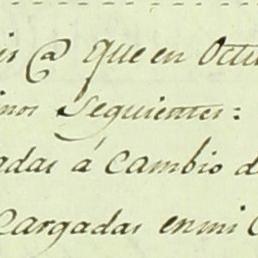 is @ que en Octu
inos Seguientes:
adas á Cambio d
Cargadas en mi C